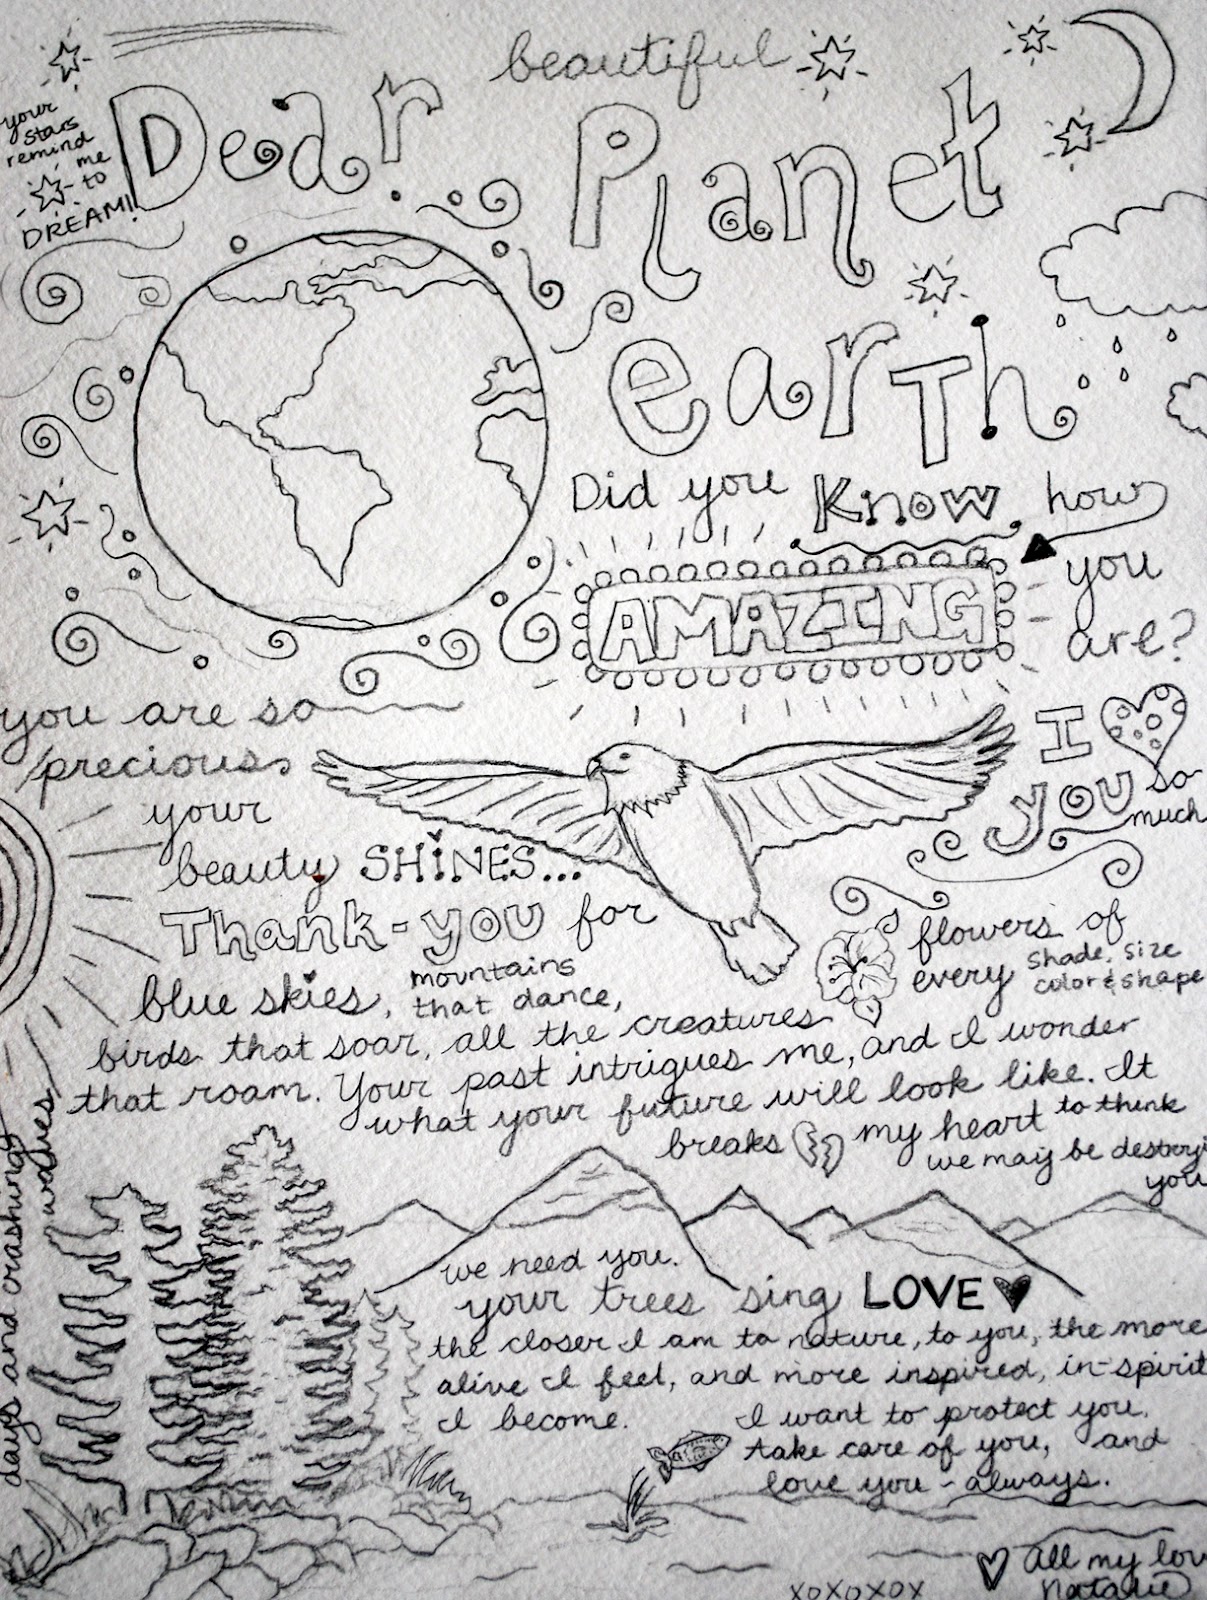 beautiful
Dear Planet
earth
your
stars
remind
me
to
DREAM!
Did you Know how
AMAZING you
are?
I you so
much
you are so
precious
your
beauty SHINES...
Thank-you for
blue skies, mountains
that dance,
flowers of
every shade, size
color & shape
birds that soar, all the creatures
that roam. Your past intrigues me, and I wonder
what your future will look like. It
breaks my heart to think
we may be destroyi
you
days and crashing
waves
we need you.
your trees sing LOVE
the closer I am to nature, to you, the more
alive I feel, and more inspired, in-spirit
I become. I want to protect you.
take care of you, and
love you - always.
all my lov
Natalie
xoxoxox